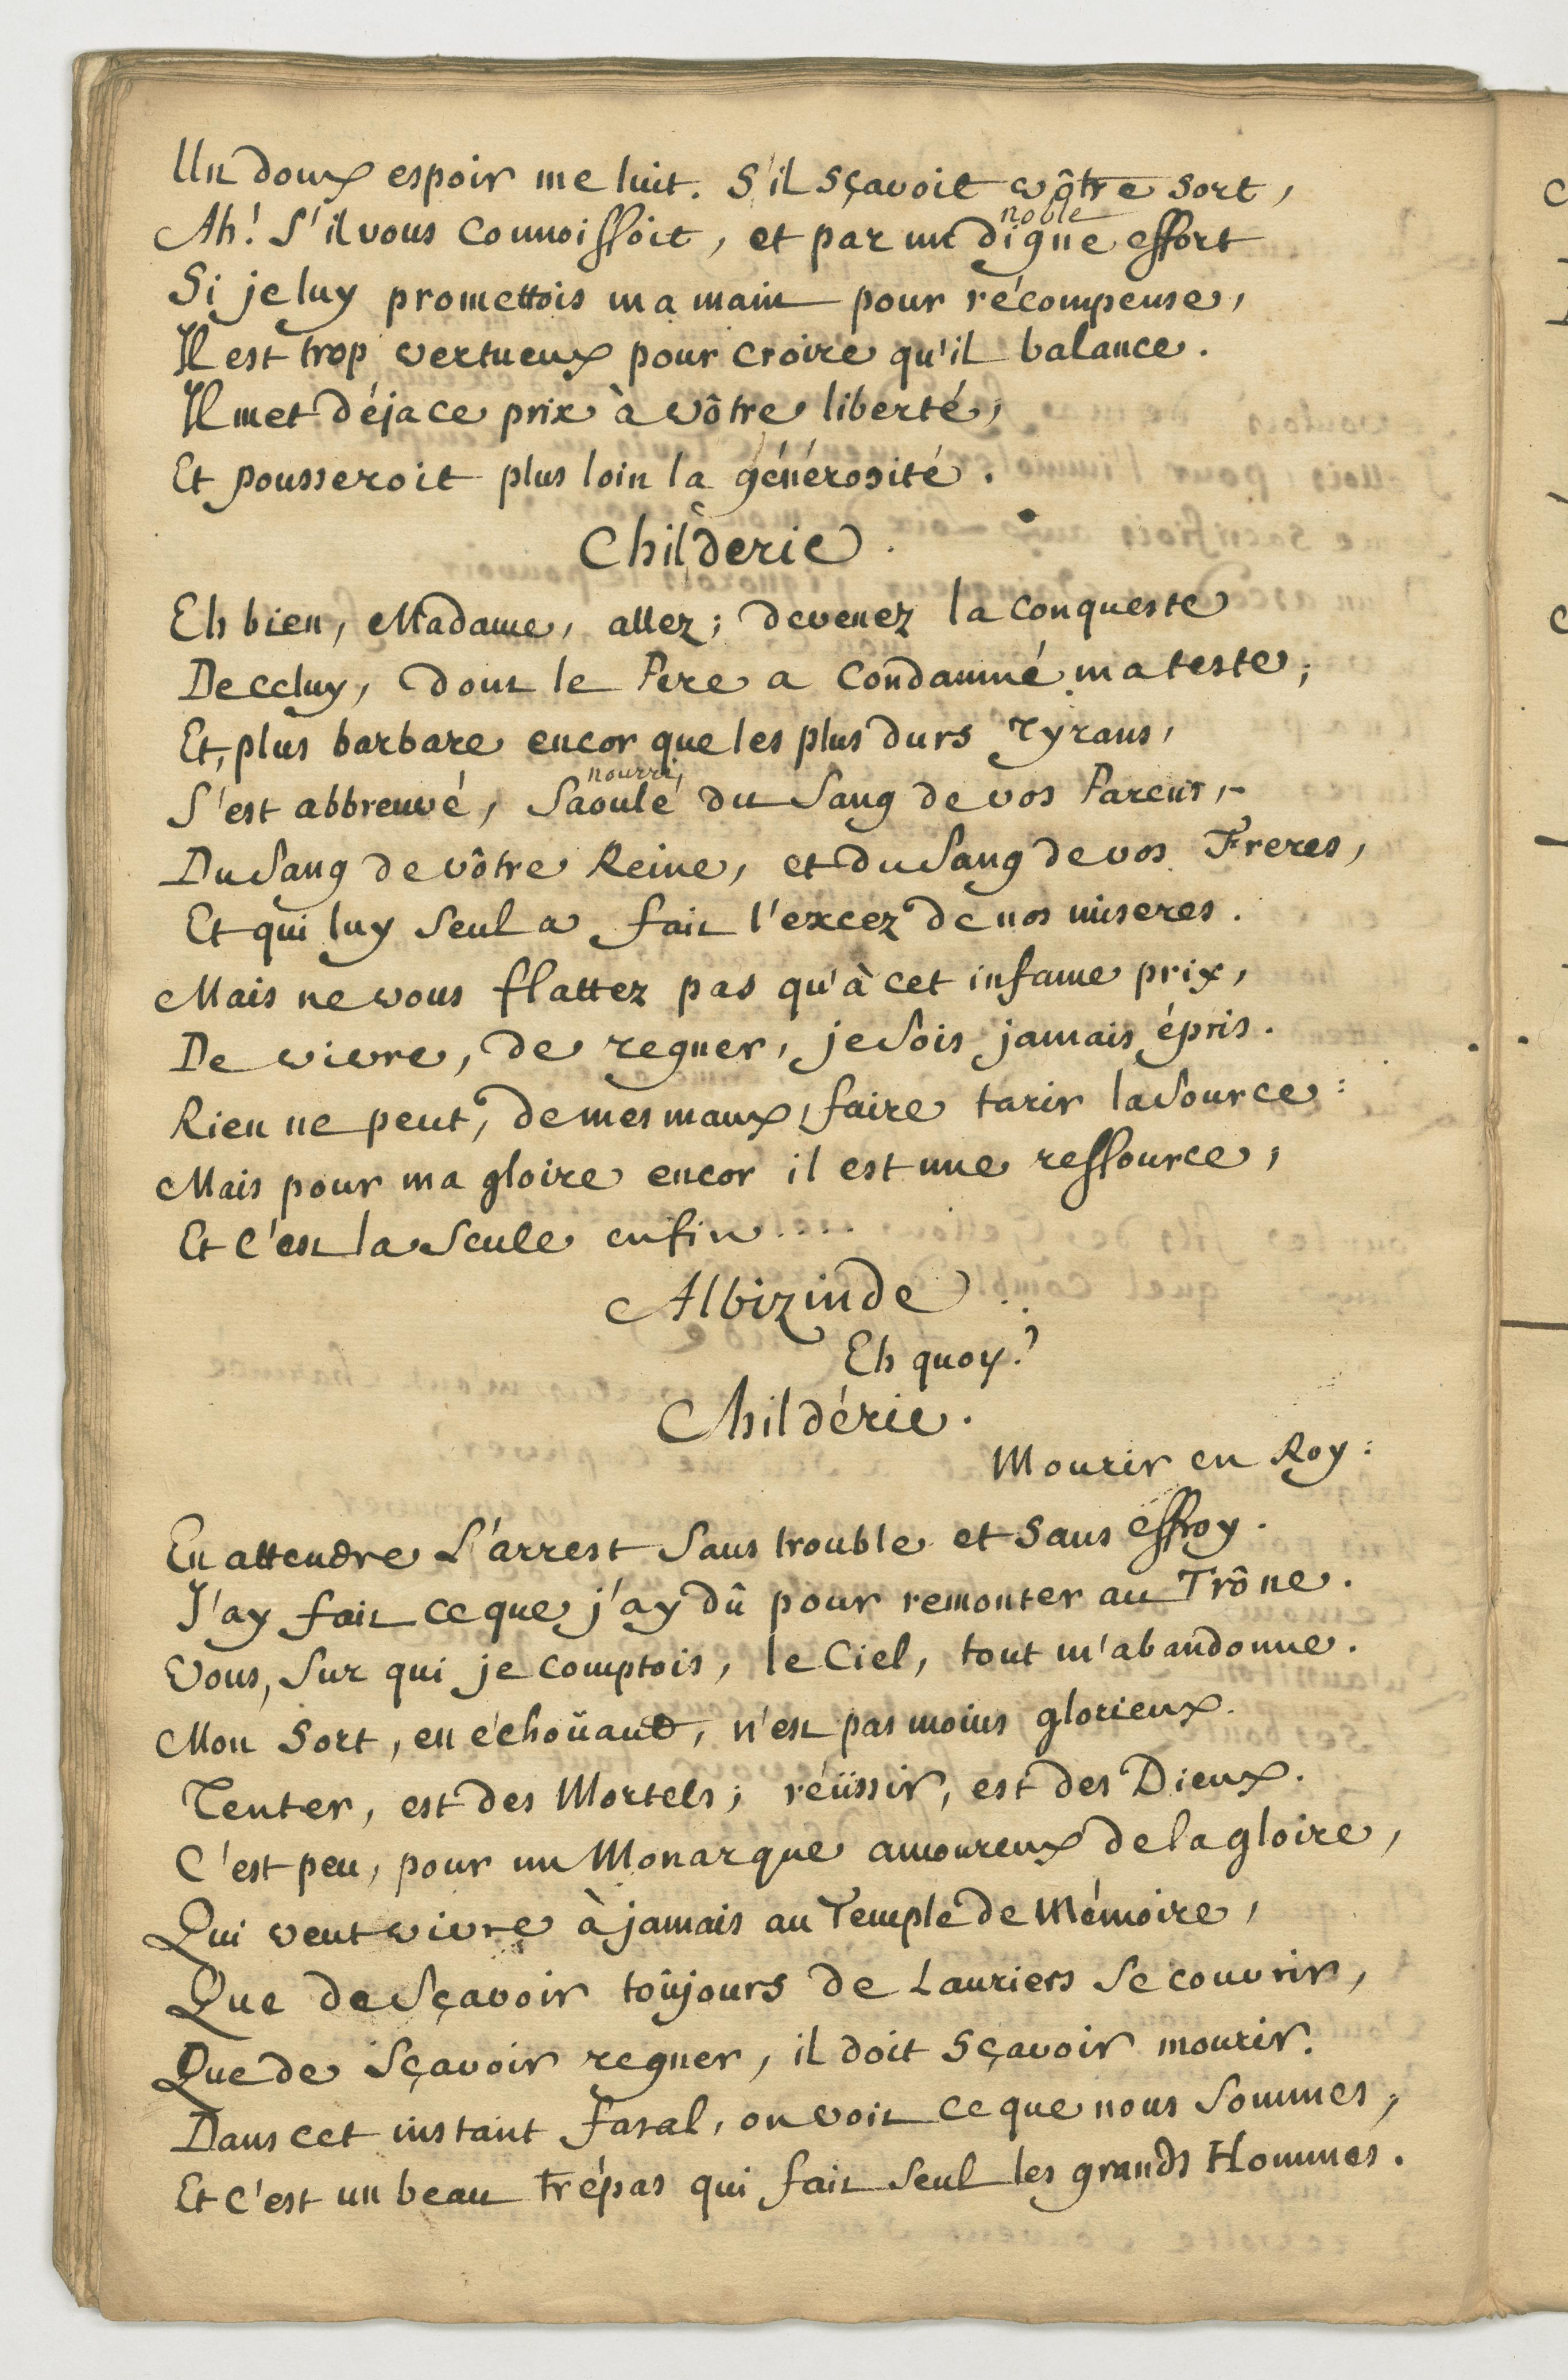 Un doux espoir me luit. S'il sçavoit vôtre sort,
noble
Ah! S'il vous connoissoit, et par un digne effort
Si je luy promettois ma main pour récompense,
Il est trop vertueux pour croire qu'il balance.
Il met déja ce prix à vôtre liberté,
Et pousseroit plus loin la générosité.
Childeric.
Eh bien, Madame, allez; devenez la conqueste
De celuy, dont le Pere a condamné ma teste;
Et, plus barbare encor que les plus durs Tyrans,
nourri,
S'est abbreuvé, Saoulé du Sang de vos Parens,
Du Sang de vôtre Reine, et du Sang de vos Freres,
Et qui luy Seul a fait l'excez de nos miseres.
Mais ne vous flattez pas qu'à cet infame prix,
De vivre, de regner, je sois jamais épris.
Rien ne peut, de mes maux, faire tarir la Source:
Mais pour ma gloire encor il est une ressource,
Et c'est la Seule enfin....
Albizinde.
Eh quoy?
Childéric.
Mourir en Roy:
En attendre L'arrest Sans trouble et sans effroy.
J'ay fait ce que j'ay dû pour remonter au Trône.
Vous, Sur qui je comptois, le Ciel, tout m'abandonne.
Mon sort, en échoüant, n'est pas moins glorieux.
Tenter, est des Mortels; réüssir, est des Dieux.
C'est peu, pour un Monarque amoureux de la gloire,
Qui veut vivre à jamais au Temple de Mémoire,
Que de Sçavoir toûjours de Lauriers Se couvrir,
Que de Sçavoir regner, il doit sçavoir mourir.
Dans cet instant fatal, on voit ce que nous Sommes,
Et c'est un beau trépas qui fait Seul les grands Hommes.